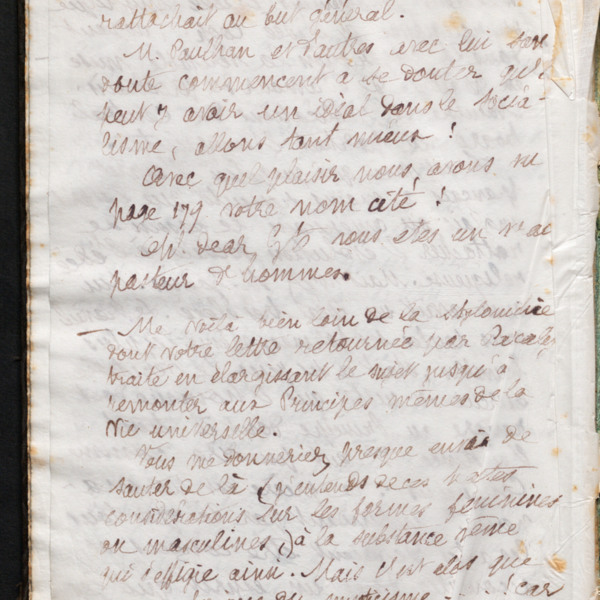 rattachait au but général.
M. Paulhan et d'autres avec lui sans
doute commencent à se douter qu'il
peut y avoir un idéal dans le socia-
lisme, allons tant mieux !
Avec quel plaisir nous avons vu
page 179 votre nom cité !
Oh. dear, vous êtes un vrai
pasteur d'hommes.
— Me voilà bien loin de la
dont votre lettre retournée par
traite en élargissant le sujet jusqu'à
remonter aux Principes mêmes de la
Vie universelle.
Vous me donneriez presque envie de
sauter de là (j'entends de ces
considérations sur les formes féminines
ou masculines,) à la substance même
qui s'effigie ainsi. Mais c'est alors que
du mysticisme car